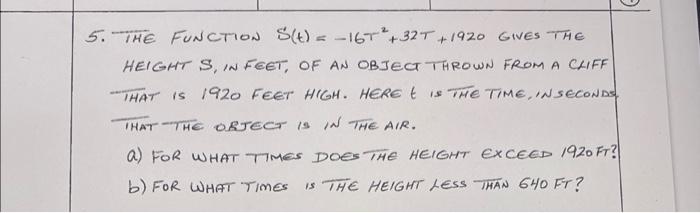 5. THE FUNCTION S(t) = -16T²+32T+1920 GIVES THE
HEIGHT S, IN FEET, OF AN OBJECT THROWN FROM A CLIFF
THAT IS 1920 FEET HIGH. HERE t IS THE TIME, IN SECONDS,
THAT THE OBJECT IS IN THE AIR.
a) FOR WHAT TIMES DOES THE HEIGHT EXCEED 1920 FT?
b) FOR WHAT TIMES IS THE HEIGHT LESS THAN 640 FT?